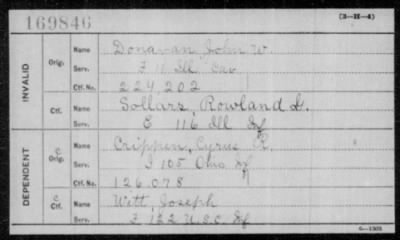 169846
(3-H-4)
INVALID
Orig. Name Donavan, John W.
Serv. F 11 Ill Cav
Ctf. No. 224,202
Ctf. Name Sollars, Rowland G.
Serv. E 116 Ill Inf
DEPENDENT
C Orig. Name Crippen, Cyrus R.
Serv. I 105 Ohio Inf
Ctf. No. 126,078
C Ctf. Name Witt, Joseph
Serv. F 122 U.S.C. Inf